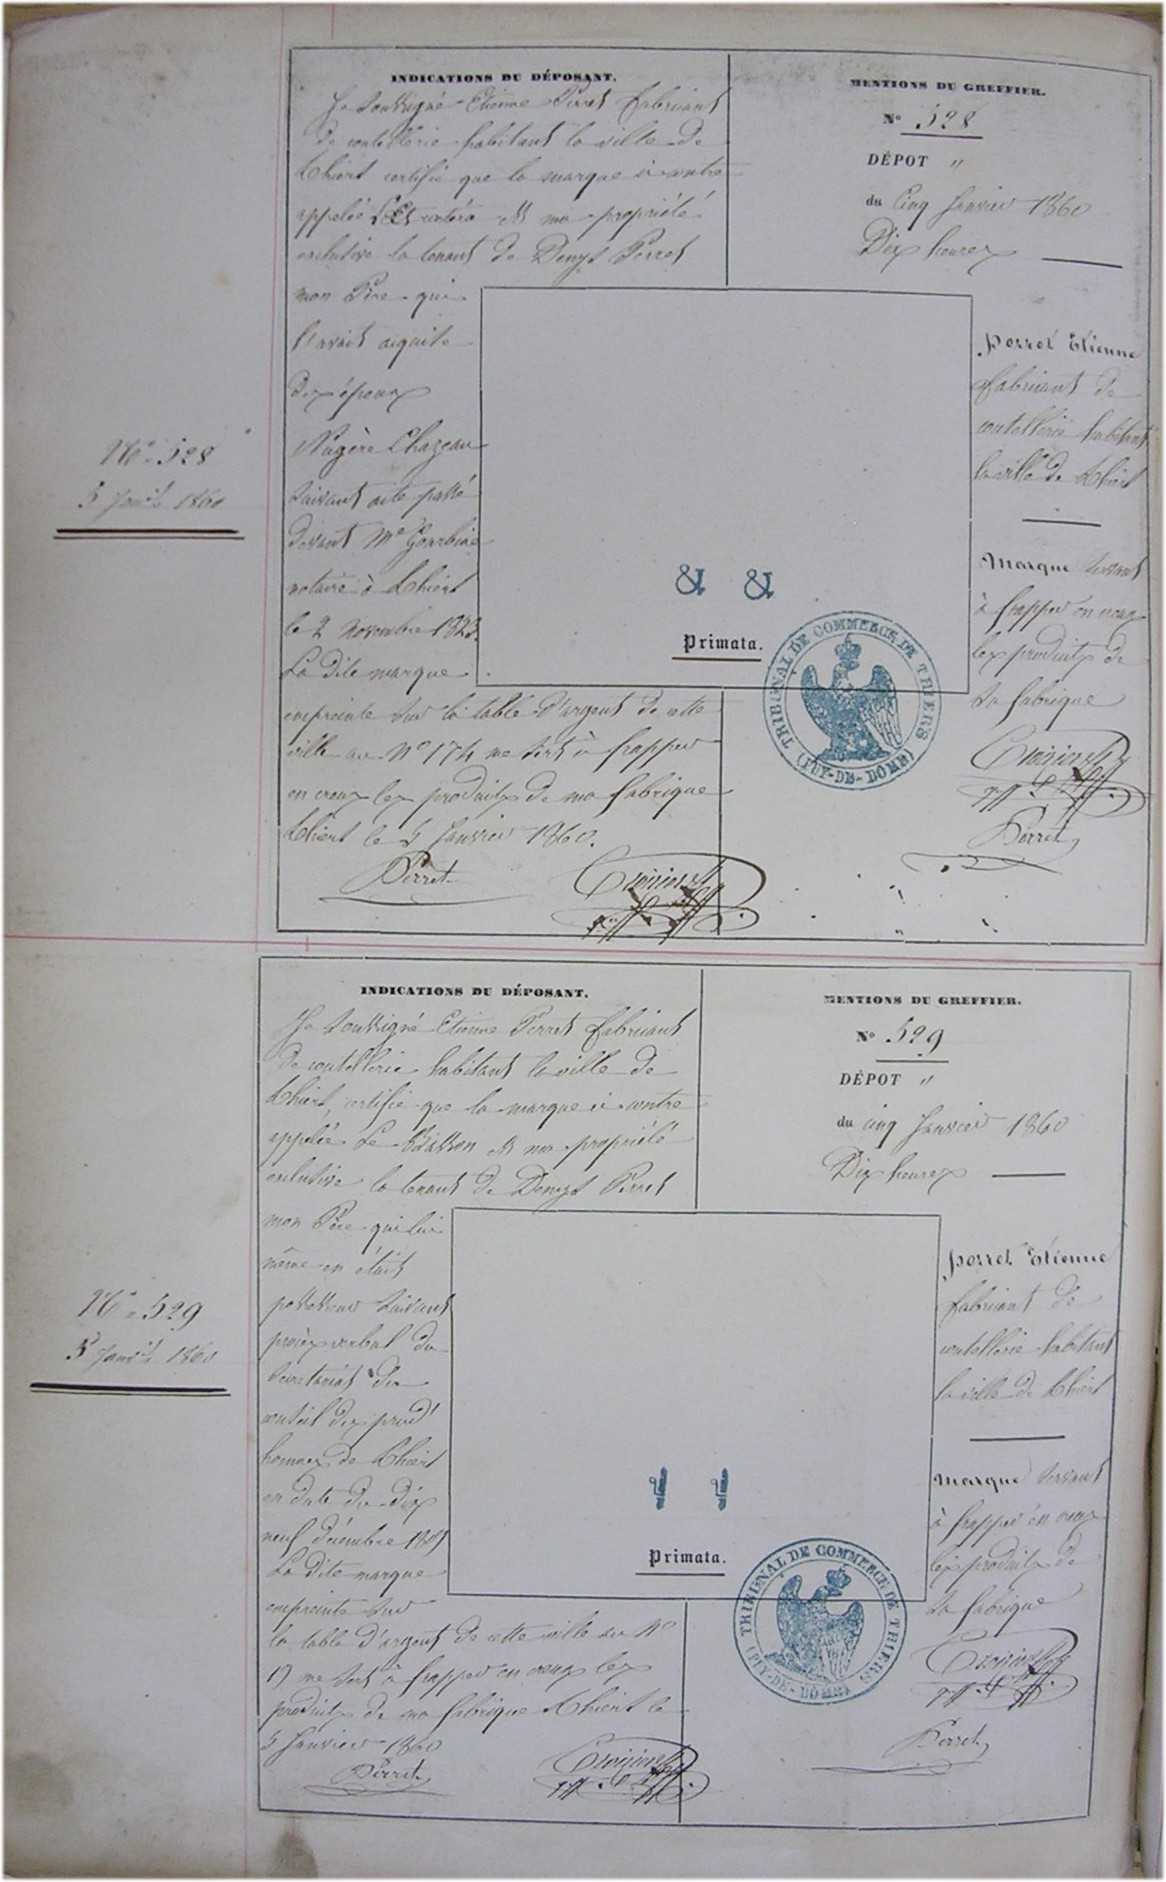 N° 528
5 Janv. 1860
INDICATIONS DU DÉPOSANT.
Je soussigné Etienne Perret fabricant
de coutellerie habitant la ville de
Thiers certifie que la marque ci contre
appelée est ma propriété
exclusive la tenant de Denys Perret
mon Père qui
l'avait acquise
des époux
Nugère Chazeau
suivant acte passé
devant Me
notaire à Thiers
le 2 novembre
La dite marque
empreinte sur la table d'argent de cette
ville au N° 174 me sert à frapper
en creux les produits de ma fabrique
Thiers le 5 Janvier 1860.
Perret
MENTIONS DU GREFFIER.
N° 528
DÉPOT "
du Cinq Janvier 1860
Dix heures
Perret Etienne
fabricant de
coutellerie habitant
la ville de Thiers
Marque servant
à frapper en creux
les produits de
sa fabrique
Perret
& &
Primata.
TRIBUNAL DE COMMERCE DE THIERS
(PUY-DE-DOME)
N° 529
5 Janv. 1860
INDICATIONS DU DÉPOSANT.
Je soussigné Etienne Perret fabricant
de coutellerie habitant la ville de
Thiers, certifie que la marque ci contre
appelée Le est ma propriété
exclusive la tenant de Denys Perret
mon Père qui lui
même en était
possesseur suivant
procès verbal du
Secrétariat du
conseil des prud'
hommes de Thiers
en date du dix
neuf décembre
La dite marque
empreinte sur
la table d'argent de cette ville au N°
19 me sert à frapper en creux les
produits de ma fabrique Thiers le
5 Janvier 1860
Perret
MENTIONS DU GREFFIER.
N° 529
DÉPOT "
du cinq Janvier 1860
Dix heures
Perret Etienne
fabricant de
coutellerie habitant
la ville de Thiers
Marque servant
à frapper en creux
les produits de
sa fabrique
Perret
Primata.
TRIBUNAL DE COMMERCE DE THIERS
(PUY-DE-DOME)